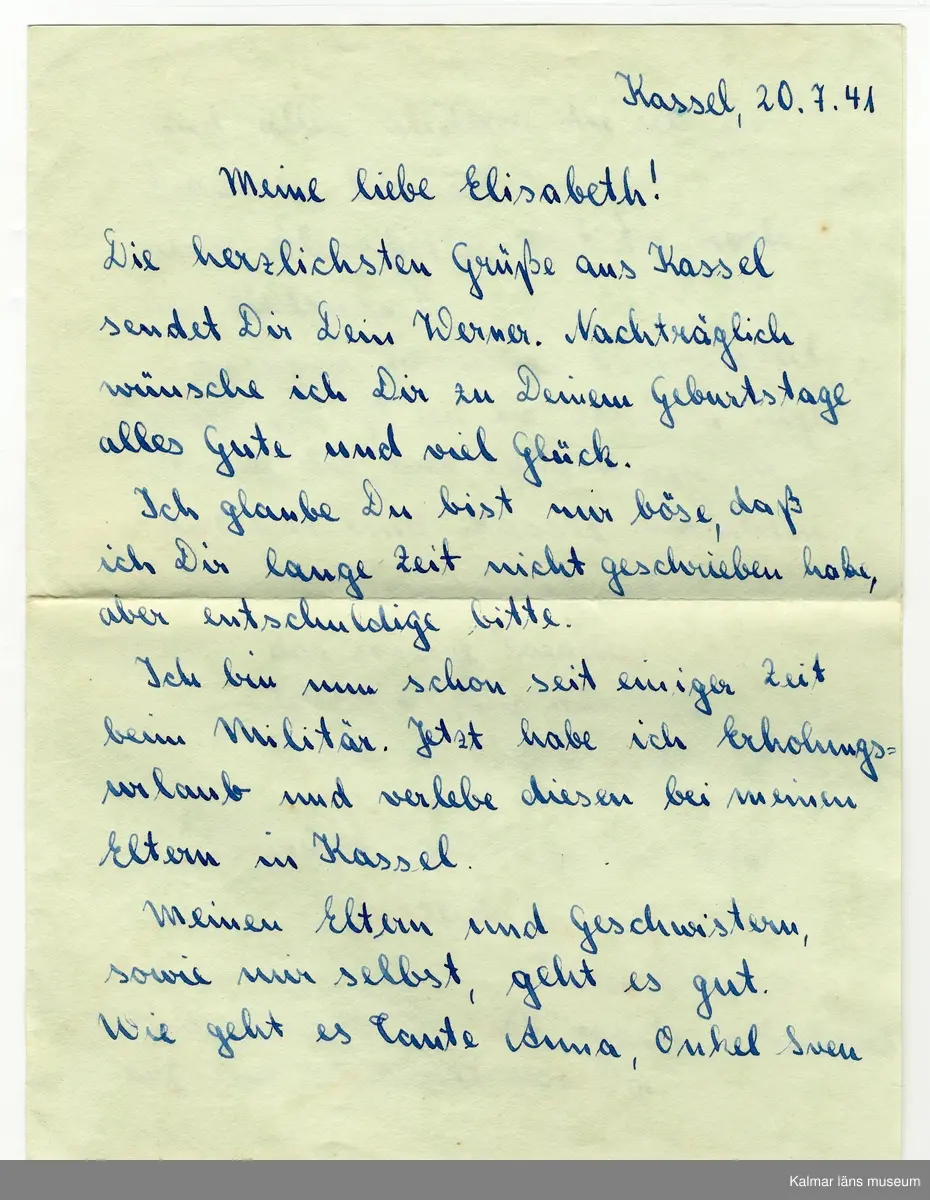 Kassel, 20.7.41
Meine liebe Elisabeth!
Die herzlichsten Grüße aus Kassel
sendet Dir Dein Werner. Nachträglich
wünsche ich Dir zu Deinem Geburtstage
alles Gute und viel Glück.
Ich glaube Du bist mir böse, daß
ich Dir lange Zeit nicht geschrieben habe,
aber entschuldige bitte.
Ich bin nun schon seit einiger Zeit
beim Militär. Jetzt habe ich Erholungs=
urlaub und verlebe diesen bei meinen
Eltern in Kassel.
Meinen Eltern und Geschwistern,
sowie mir selbst, geht es gut.
Wie geht es Tante Anna, Onkel Sven
Kalmar läns museum